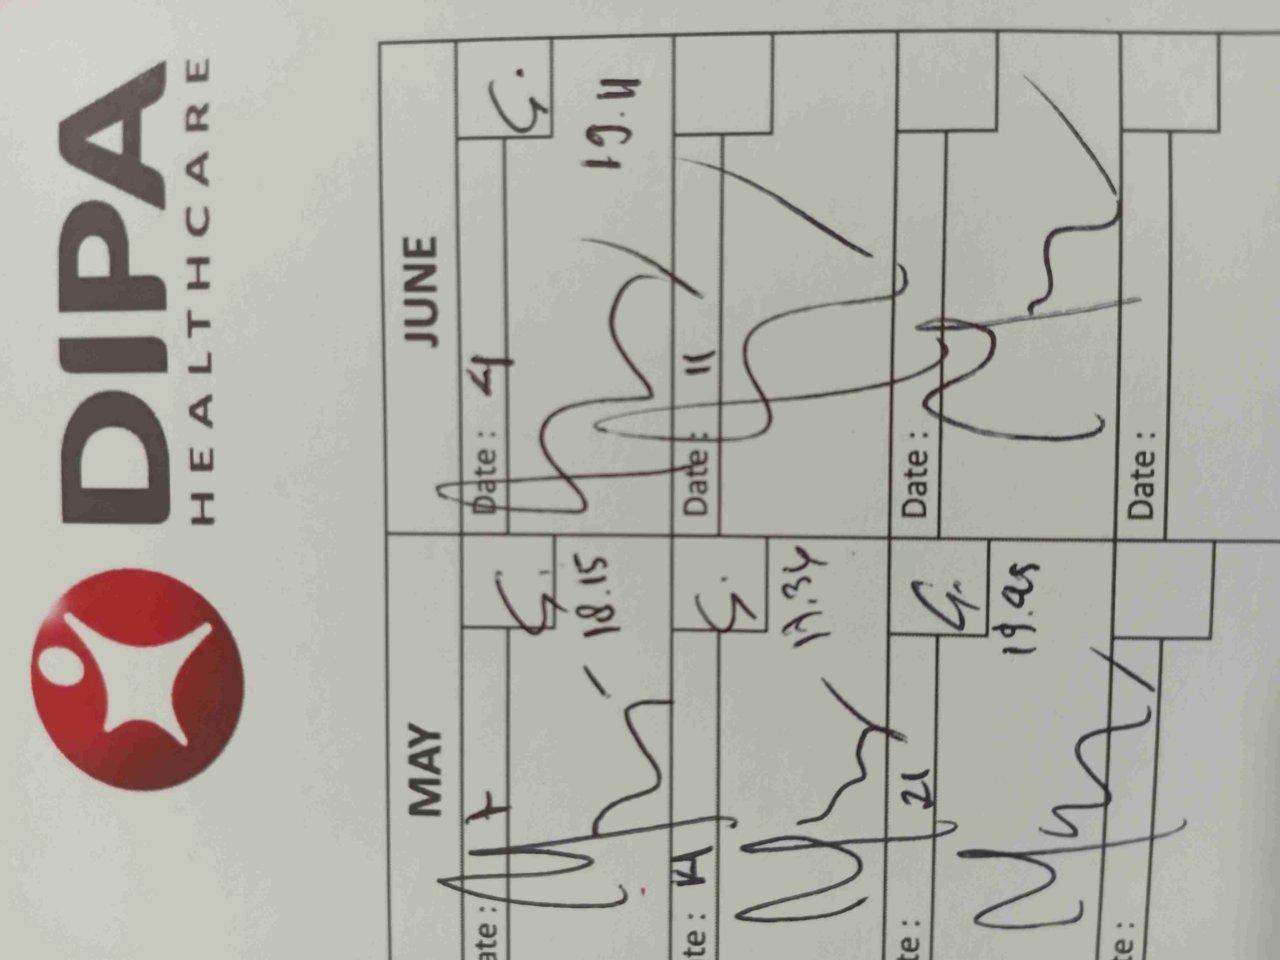 DIPA
HEALTHCARE
MAY JUNE
Date : 7 G. Date : 4 G.
18.15 19.11
Date : 14 G. Date : 11
17.34
Date : 21 G. Date :
19.45
Date : Date :